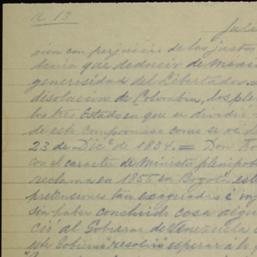 A 13
sion con perjuicio de los justos
deria que deducir de
generosidad del Libertador
disolucion de Colombia, los ple
los tres Estados en que se dividió
de este compromiso como se ve de
23 de Dic.e de 1834. = Don
con el caracter de Ministro plenipot
reclama en 1855 en Bogotá est
pretensiones tan exageradas é in
sin haber concluido cosa algu
ció al Gobierno de Venezuela
este Gobierno resolvió esperar á le